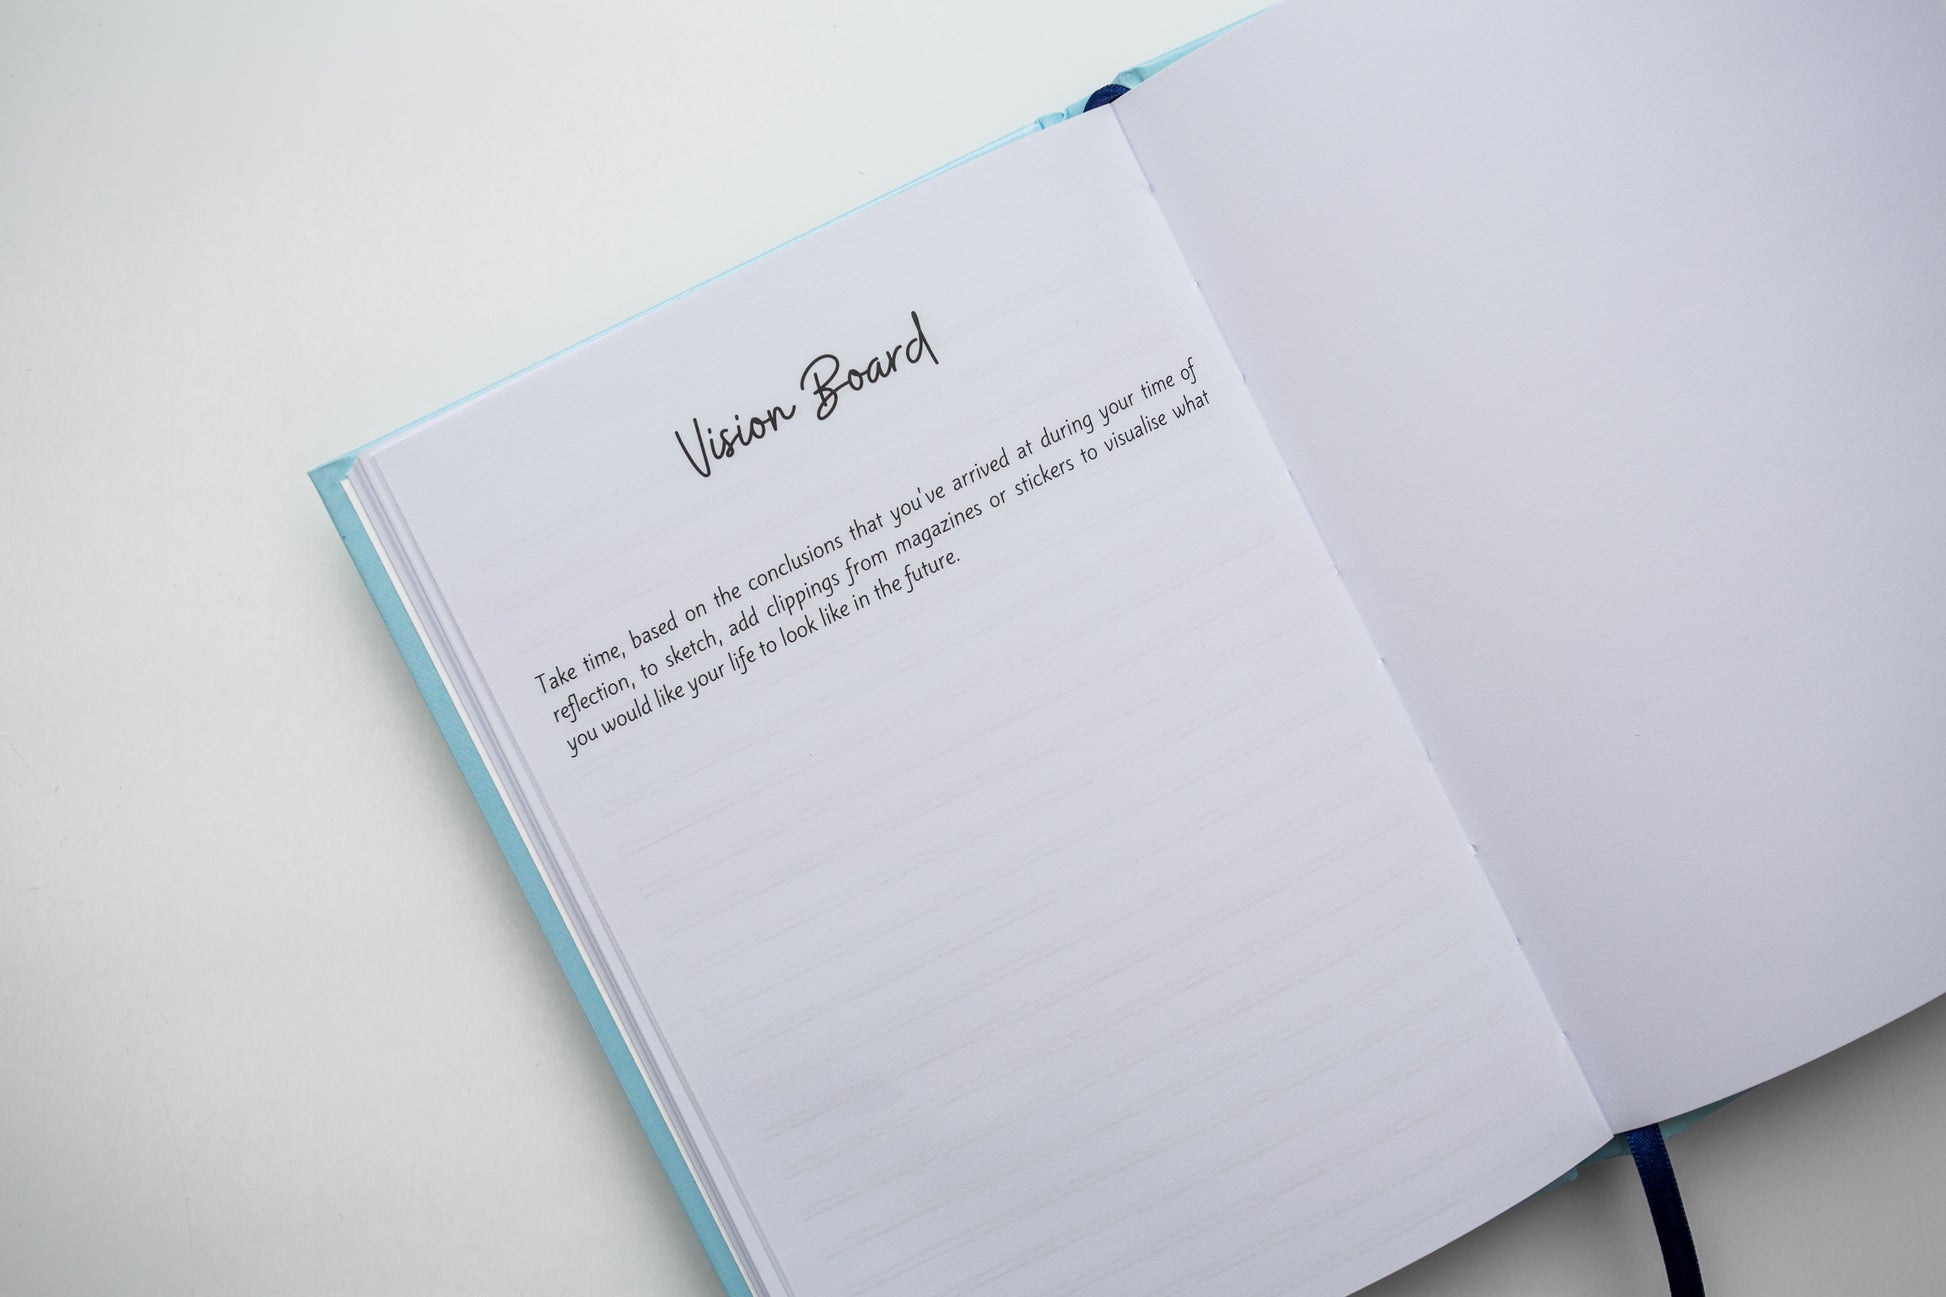 Vision Board
Take time, based on the conclusions that you've arrived at during your time of
reflection, to sketch, add clippings from magazines or stickers to visualise what
you would like your life to look like in the future.